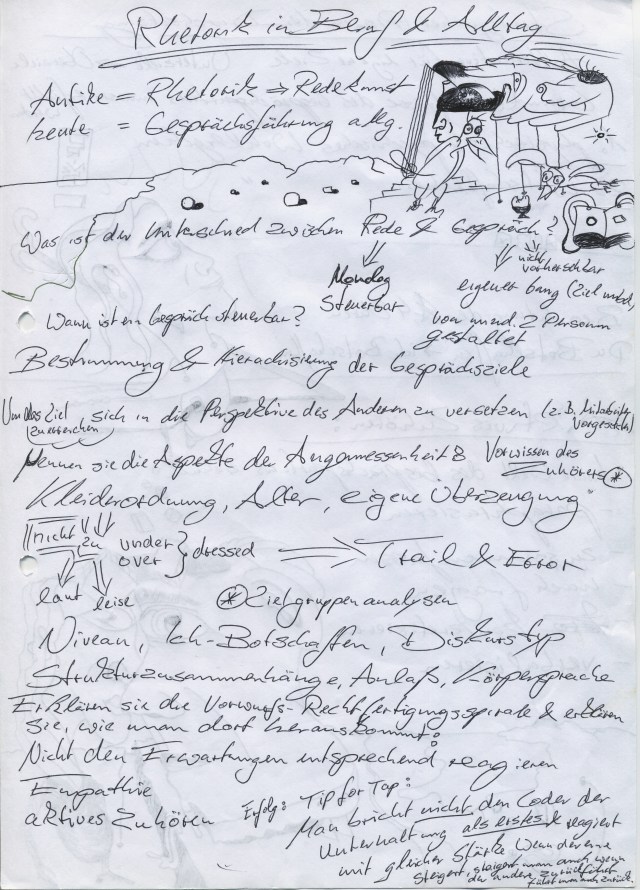 Rhetorik in Beruf & Alltag
Antike = Rhetorik ⇒ Redekunst
heute = Gesprächsführung allg.
Was ist der Unterschied zwischen Rede & Gespräch?
Monolog
Steuerbar
nicht vorhersehbar
eigener (Ziel
von mind. 2 Personen
gestaltet
Wann ist ein Gespräch steuerbar?
Bestimmung & Hierachisirung der Gesprächsziele
Um das Ziel zu erreichen, sich in die Perspektive des Anderen zu versetzen (z.B. Mitarbeiter, Vorgesetzten)
Nennen sie die Aspekte der Angemessenheit: Vorwissen des
Zuhörers *
Kleiderordnung, Alter, eigene Überzeugung
nicht zu under
over } dressed ⇒ Trail & Error
laut leise
* Zielgruppenanalysen
Niveau, Ich-Botschaften, Diskurstyp
Strukturzusammenhänge, Anlaß, Körpersprache
Erklären sie die Vorwurfs-Rechtfertigungsspirale & erklären
Sie, wie man dort herauskommt:
Nicht den Erwartungen entsprechend reagieren
Empathie
aktives Zuhören
Erfolg: Tip for Tap:
Man bricht nicht den Codex der
Unterhaltung als erstes & reagiert
mit gleicher Stärke wenn der eine
steigert, steigert man auch, wenn
der andere zurückfährt
fährt man auch zurück.